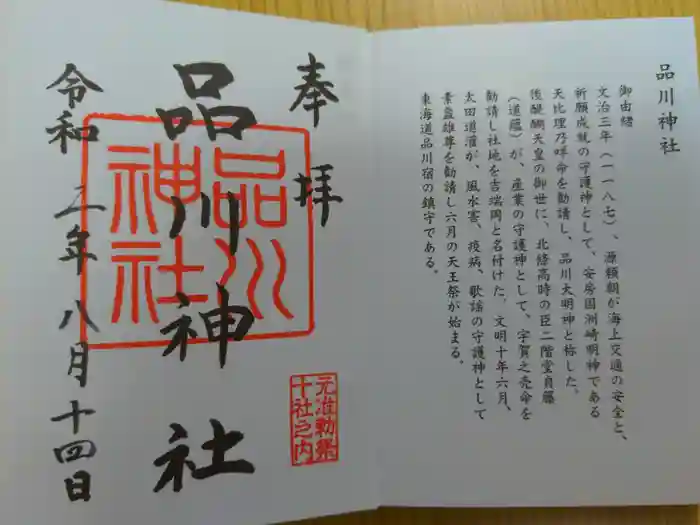 品川神社
御由緒
文治三年（一一八七）、源頼朝が海上交通の安全と、
祈願成就の守護神として、安房国洲崎明神である
天比理乃咩命を勧請し、品川大明神と称した。
後醍醐天皇の御世に、北條高時の臣二階堂貞藤
（道蘊）が、産業の守護神として、宇賀之売命を
勧請し社地を吉端岡と名付けた。文明十年六月、
太田道灌が、風水害、疫病、歌謡の守護神として
素盞雄尊を勧請し六月の天王祭が始まる。
東海道品川宿の鎮守である。
奉拝
品川神社
令和二年八月十四日
品川
神社
元准勅祭
十社之内